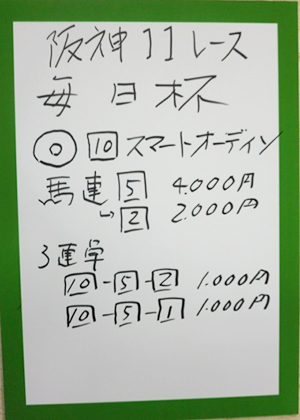 阪神11レース
毎日杯
◎ 10 スマートオーディン
馬連 5 4.000円
→ 2 2.000円
3連単
10-5-2 1.000円
10-5-1 1.000円